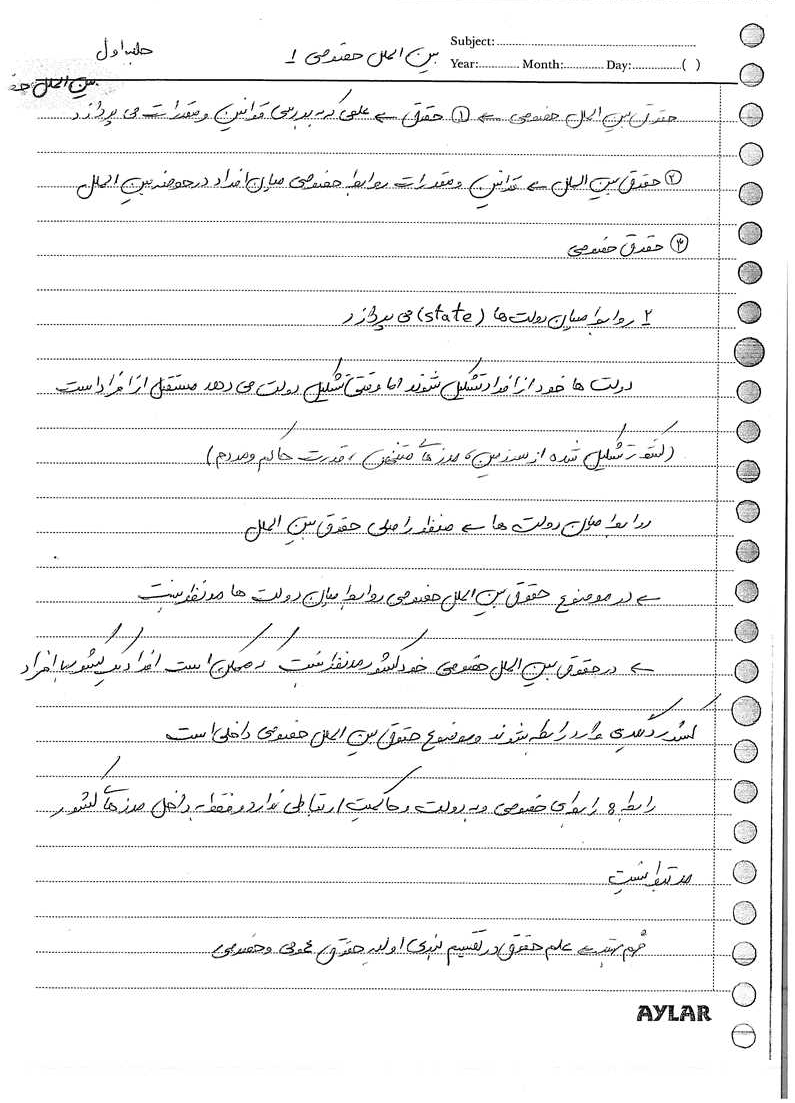 Subject:
بین الملل خصوصی ۱
جلسه اول
Year: Month: Day: ( )
بین الملل
حقوق بین الملل خصوصی ← ① حقوق ← علمی که به بررسی قوانین و مقررات می پردازد
② حقوق بین الملل ← قوانین و مقررات روابط خصوصی میان افراد در حوضه بین الملل
③ حقوق خصوصی
۲ روابط میان دولت ها (state) می پردازد
دولت ها خود از افراد تشکیل شوند اما وقتی تشکیل دولت می دهد مستقل از افراد است
(کشور تشکیل شده از سرزمین، مرزهای مشخص، قدرت حاکم و مردم)
روابط میان دولت ها ← منظور اصلی حقوق بین الملل
← در موضوع حقوق بین الملل خصوصی روابط میان دولت ها مدنظر نیست
← در حقوق بین الملل خصوصی خود کشور مدنظر نیست و ممکن است افراد یک کشور با افراد
کشور دیگری وارد رابطه شوند و موضوع حقوق بین الملل خصوصی داخلی است
رابطه رابطه‌ای خصوصی و به دولت و حاکمیت ارتباطی ندارد و فقط به داخل مرزهای کشور
مرتبط نیست
علم حقوق در تقسیم بندی اولیه حقوق عمومی و خصوصی
AYLAR